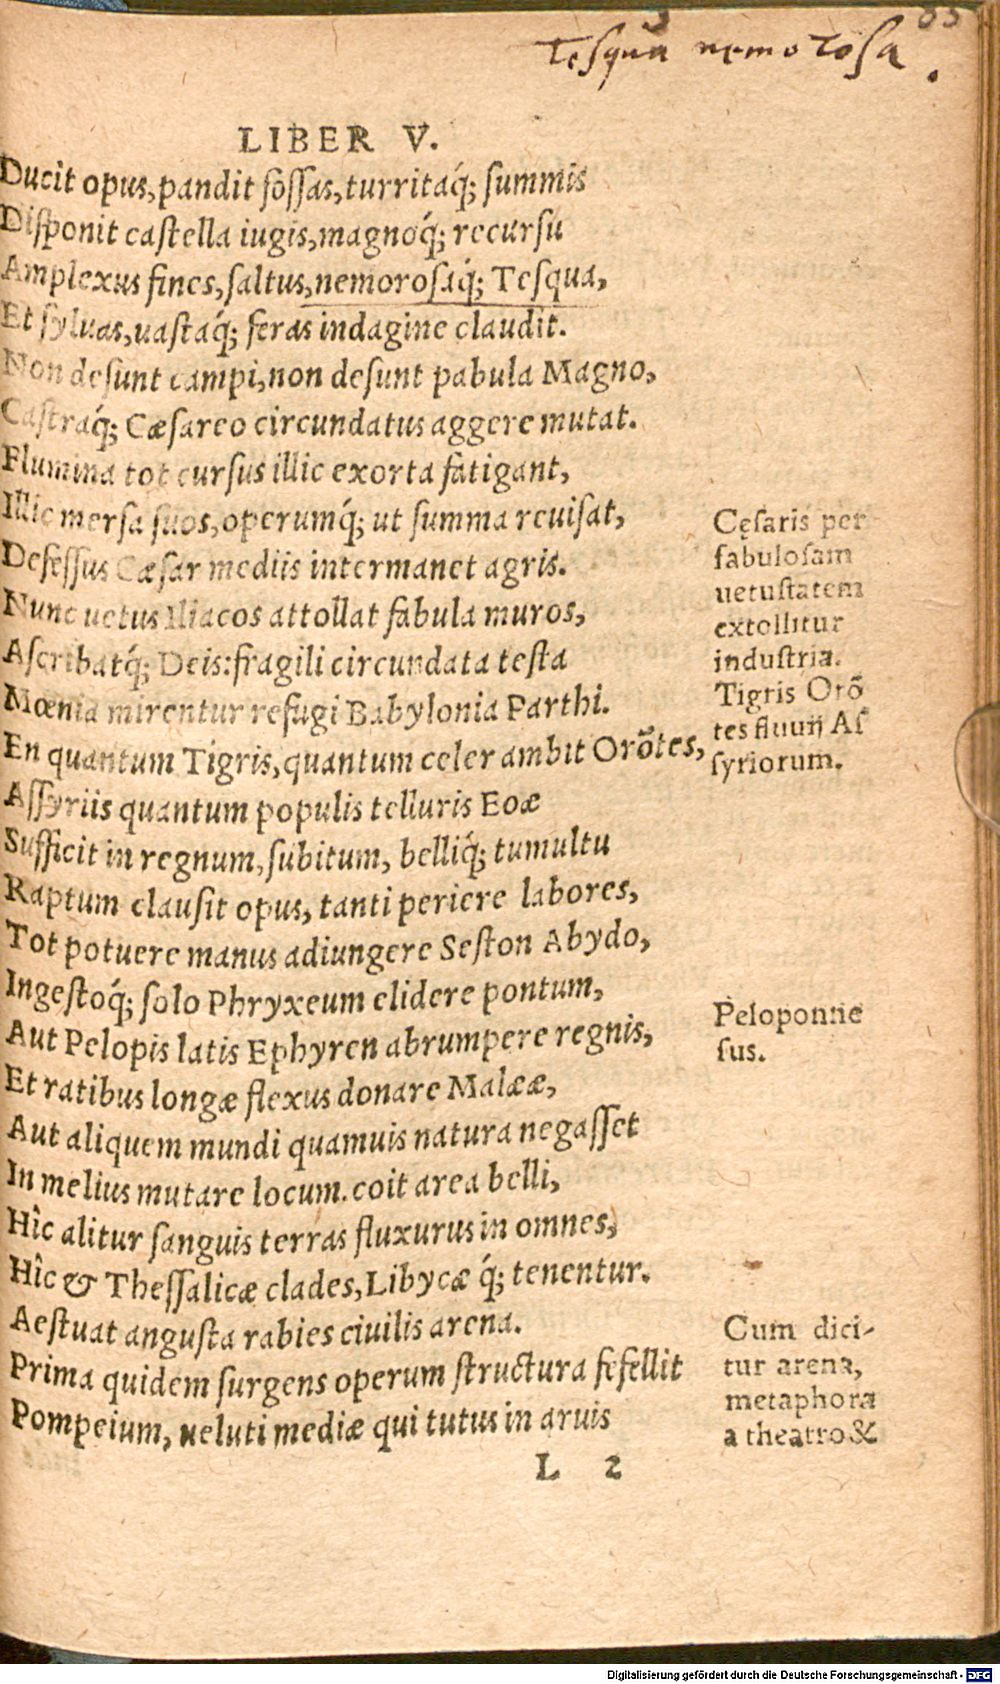 83
Tesqua nemorosa.
LIBER V.
Ducit opus, pandit fossas, turritaq́; summis
Disponit castella iugis, magnoq́; recursu
Amplexus fines, saltus, nemorosaq́; Tesqua,
Et syluas, uastaq́; feras indagine claudit.
Non desunt campi, non desunt pabula Magno,
Castraq́; Cæsareo circundatus aggere mutat.
Flumina tot cursus illic exorta fatigant,
Illic mersa suos, operumq́; ut summa reuisat,
Defessus Cæsar mediis intermanet agris.
Nunc uetus Iliacos attollat fabula muros,
Ascribatq́; Deis: fragili circundata testa
Mœnia mirentur refugi Babylonia Parthi.
En quantum Tigris, quantum celer ambit Orõtes,
Assyriis quantum populis telluris Eoæ
Sufficit in regnum, subitum, belliq́; tumultu
Raptum clausit opus, tanti periere labores,
Tot potuere manus adiungere Seston Abydo,
Ingestoq́; solo Phryxeum elidere pontum,
Aut Pelopis latis Ephyren abrumpere regnis,
Et ratibus longæ flexus donare Maleæ,
Aut aliquem mundi quamuis natura negasset
In melius mutare locum. coit area belli,
Hîc alitur sanguis terras fluxurus in omnes,
Hîc & Thessalicæ clades, Libycæ q́; tenentur.
Aestuat angusta rabies ciuilis arena.
Prima quidem surgens operum structura fefellit
Pompeium, ueluti mediæ qui tutus in aruis
L 2
Cęsaris per
fabulosam
uetustatem
extollitur
industria.
Tigris Orõ
tes fluuii As
syriorum.
Peloponne
sus.
Cum dici-
tur arena,
metaphora
a theatro &
Digitalisierung gefördert durch die Deutsche Forschungsgemeinschaft - DFG